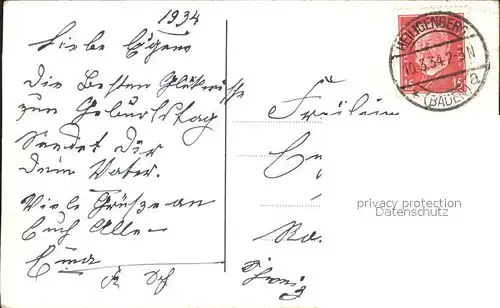 1934
Liebe Eugenie
Die Besten Glükwüsche
zum Geburtstag
Sendet Dir
Dein Vater.
Viele Grüsze an
Euch Alle –
HEILIGENBERG
10.3.34.7-8N
a
* (BADEN)
15 15
Freilein
privacy protection
Datenschutz
Ra.